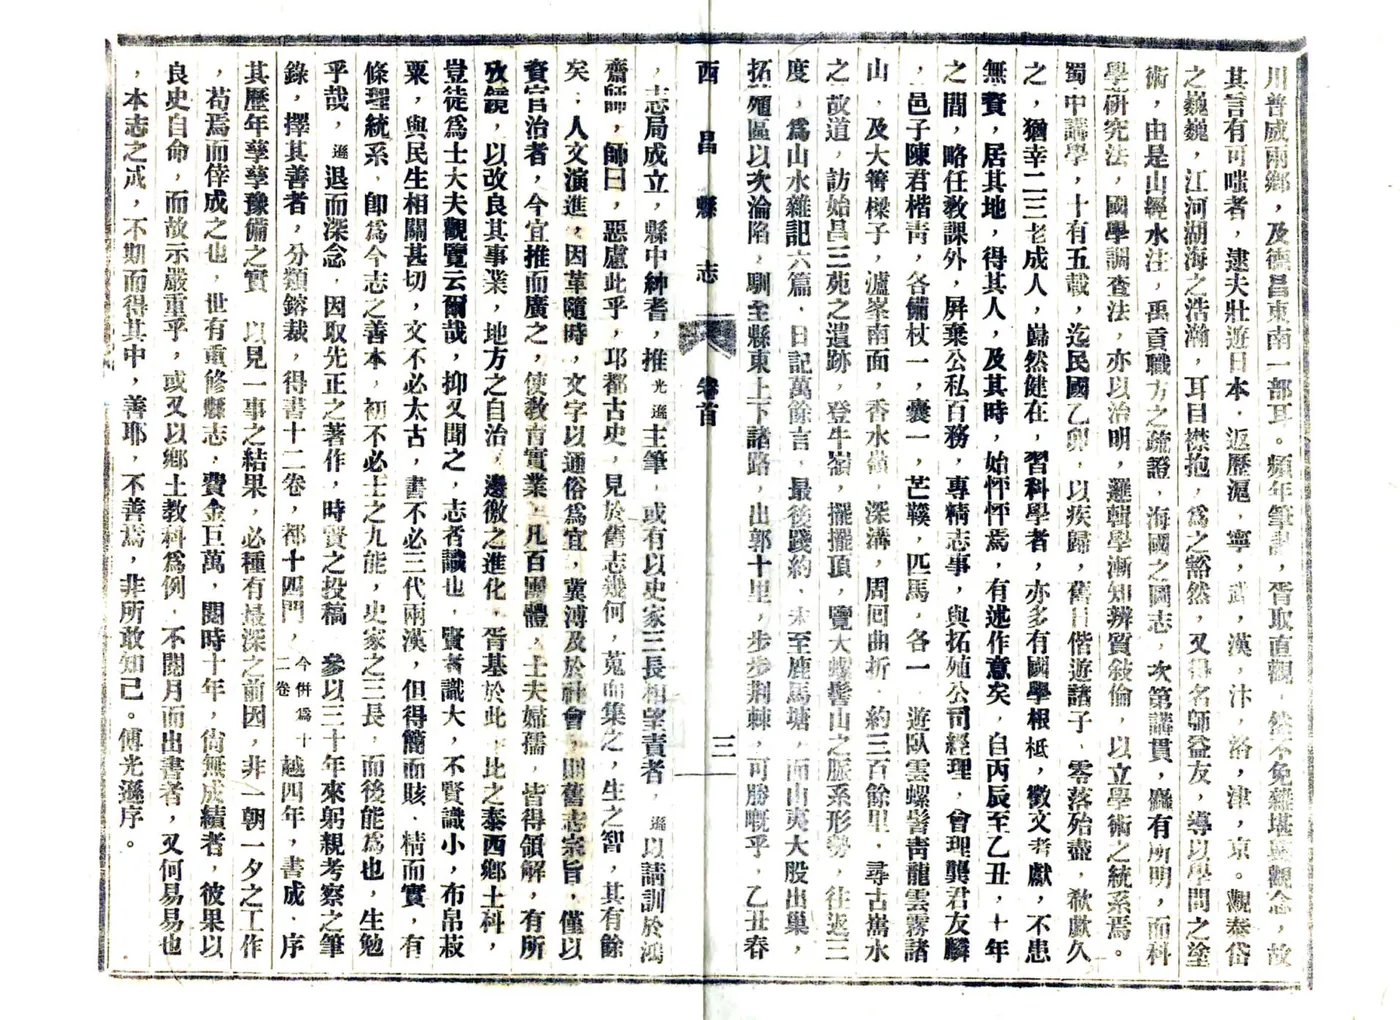 川普威兩鄉，及德昌東南一部耳。頻年筆記，胥取直觀，然不免雜堪輿觀念，故
其言有可嗤者，逮夫壯遊日本，返歷滬，寧，武，漢，汴，洛，津，京。觀泰岱
之巍巍，江河湖海之浩瀚，耳目襟抱，為之豁然，又得名師益友，導以學問之塗
術，由是山經水注，禹貢職方之疏證，海國之圖志，次第講貫，麤有所明，而科
學研究法，國學調查法，亦以治明，邏輯學漸知辨質敍倫，以立學術之統系焉。
蜀中講學，十有五載，迄民國乙卯，以疾歸，舊日偕遊諸子，零落殆盡，欷歔久
之，猶幸二三老成人，巋然健在，習科學者，亦多有國學根柢，徵文考獻，不患
無資，居其地，得其人，及其時，始怦怦焉，有述作意矣，自丙辰至乙丑，十年
之間，略任教課外，屏棄公私百務，專精志事，與拓殖公司經理，會理龔君友麟
，邑子陳君楷青，各備杖一，囊一，芒鞵，匹馬，各一　遊臥雲螺髻青龍雲霧諸
山，及大箐樑子，瀘峯南面，香水嶺，深溝，周回曲折，約三百餘里，尋古嶲水
之故道，訪始昌三苑之遺跡，登牛嶺，擺擺頂，覽大螺髻山之脈系形勢，往返三
度，為山水雜記六篇，日記萬餘言，最後踐約，未至鹿馬塘，而山夷大股出巢，
拓殖區以次淪陷，馴至縣東上下諸路，出郭十里，步步荆棘，可勝嘅乎，乙丑春
西昌縣志　卷首　三
，志局成立，縣中紳耆，推光遜主筆，或有以史家三長相望責者，遜以請訓於鴻
齋師，師曰，惡慮此乎，邛都古史，見於舊志幾何，蒐而集之，生之智，其有餘
矣，人文演進，因革隨時，文字以通俗為宜，冀溥及於社會，則舊志宗旨，僅以
資官治者，今宜推而廣之，使教育實業，凡百團體，士夫婦孺，皆得領解，有所
攷鏡，以改良其事業，地方之自治，邊徼之進化，胥基於此，比之泰西鄉土科，
豈徒為士大夫觀覽云爾哉，抑又聞之，志者識也，賢者識大，不賢識小，布帛菽
粟，與民生相關甚切，文不必太古，書不必三代兩漢，但得簡而賅，精而實，有
條理統系，卽為今志之善本，初不必士之九能，史家之三長，而後能為也，生勉
乎哉，遜退而深念，因取先正之著作，時賢之投稿　參以三十年來躬親考察之筆
錄，擇其善者，分類鎔裁，得書十二卷，都十四門，今併為十二卷　越四年，書成，序
其歷年孳孳豫備之實　以見一事之結果，必種有最深之前因，非一朝一夕之工作
，苟焉而倖成之也，世有重修縣志，費金巨萬，閱時十年，尙無成績者，彼果以
良史自命，而故示嚴重乎，或又以鄉土教科為例，不閱月而出書者，又何易易也
，本志之成，不期而得其中，善耶，不善焉，非所敢知已。傅光遜序。